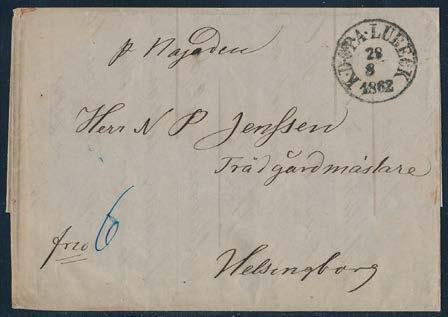 p Najaden
K.D.O.P.A. LUBECK
28
8
1862
Herr N P Jenssen
Trädgårdmästare
frco 6
Helsingborg